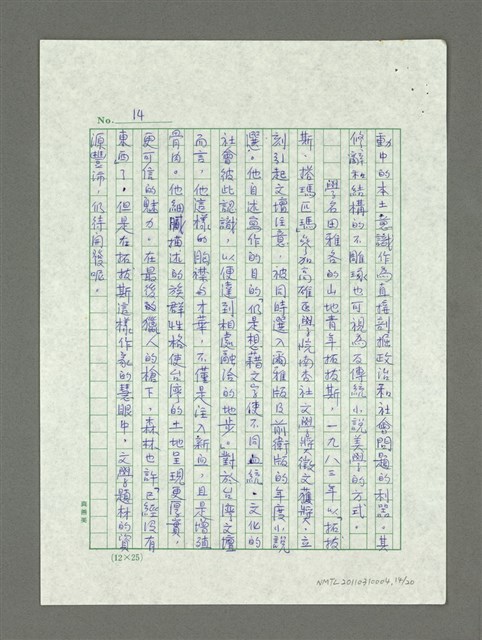 No. 14
動中的本土意識作為直接刻掘政治和社會問題的利器。其
修辭和結構的不雕琢也可視為反傳統小說美學的方式。
學名田雅各的山地青年拓拔斯,一九八三年以「拓拔
斯.搭瑪匹瑪」參加高雄医學院南杏社文學獎徵文獲獎,立
刻引起文壇注意,被同時選入爾雅版及前衛版的年度小說
選。他自述寫作的目的「仍是想藉文字使不同血統.文化的
社會彼此認識,以便達到相處融洽的地步。」對於台灣文壇
而言,他這樣的胸襟与才華,不僅是注入新血,且是增殖
骨肉。他細膩描述的族群性格使台灣的土地呈現更厚實,
更可信的魅力。在最後的獵人的槍下,森林也許「已經沒有
東西」了,但是在拓拔斯這樣作家的慧眼中,文學題材的資
源豐沛,仍待開發呢。
(12×25)
NMTL20110310004, 14/20